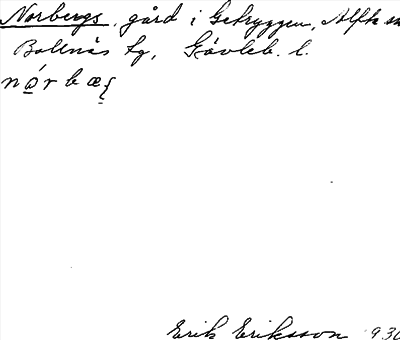 Norbergs, gård i Getryggen, Alfta sn
Bollnäs tg, Gävleb. l.
Erik Eriksson 1930